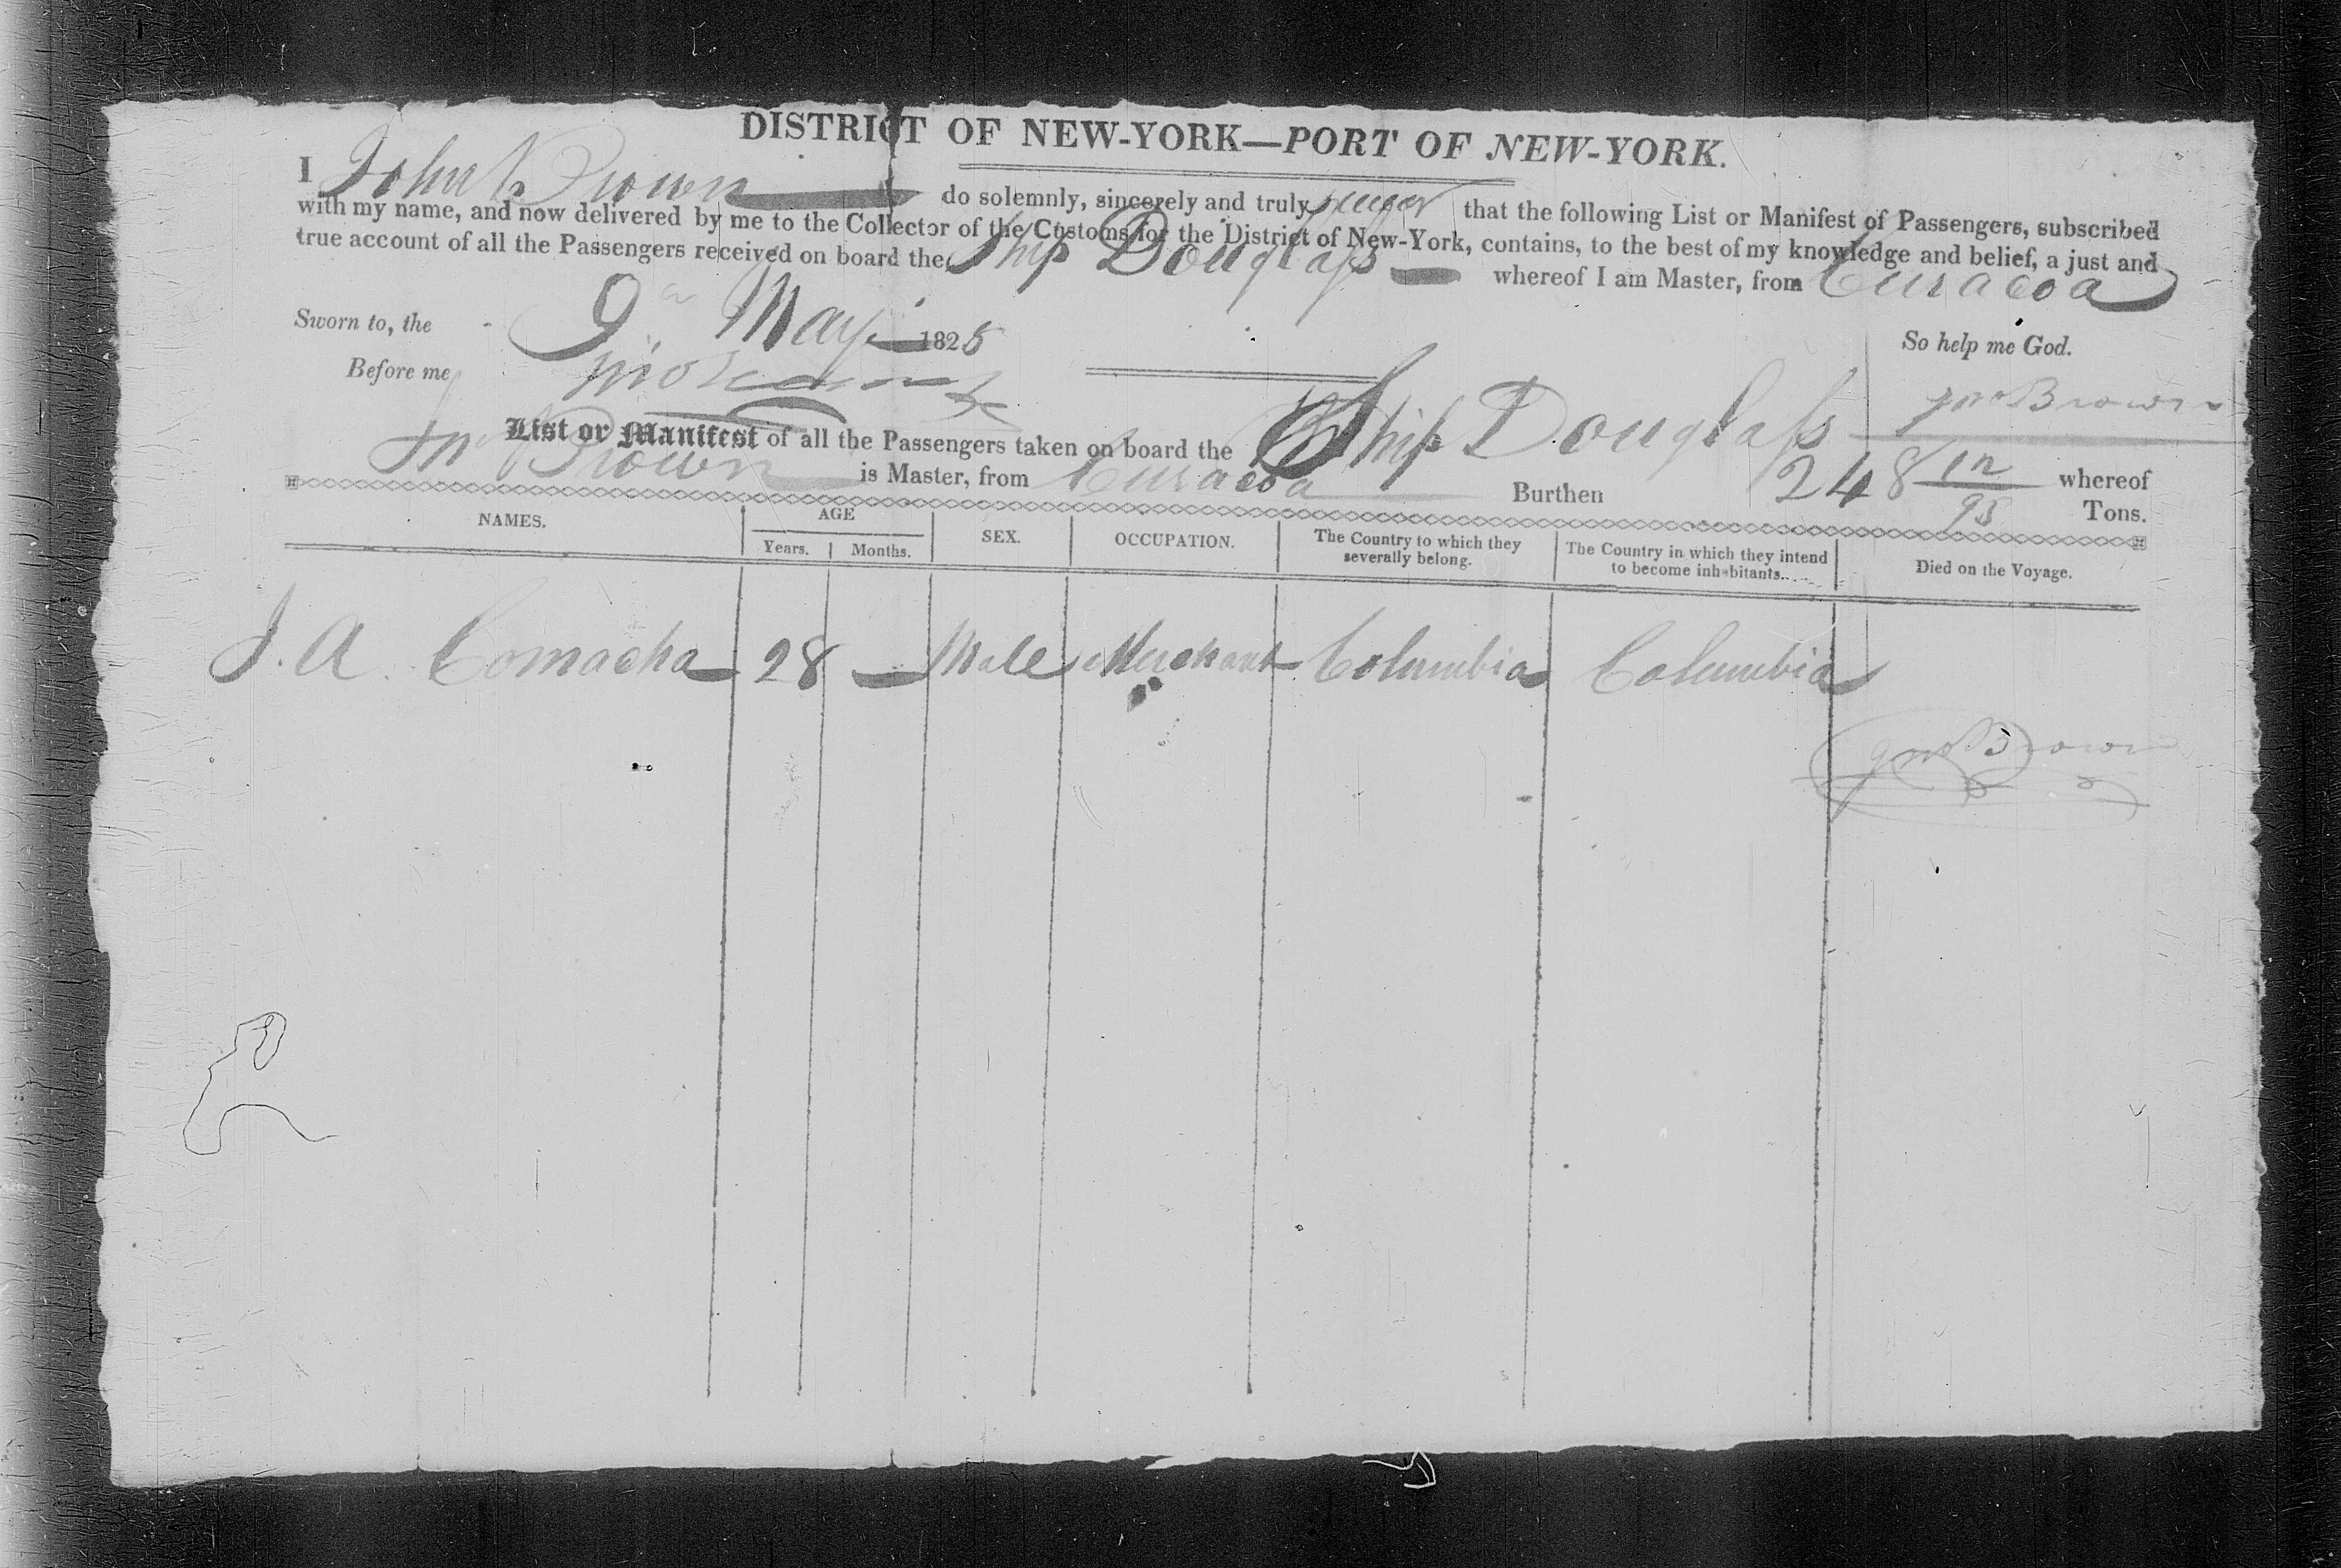 DISTRICT OF NEW-YORK—PORT OF NEW-YORK.
I John Brown do solemnly, sincerely and truly swear that the following List or Manifest of Passengers, subscribed
with my name, and now delivered by me to the Collector of the Customs for the District of New-York, contains, to the best of my knowledge and belief, a just and
true account of all the Passengers received on board the Ship Douglass whereof I am Master, from Curacoa
Sworn to, the 9 May 1825 So help me God.
Before me Jno Brown
List or Manifest of all the Passengers taken on board the Ship Douglass whereof
Jno Brown is Master, from Curacoa Burthen 248 12/95 Tons.
NAMES. AGE SEX. OCCUPATION. The Country to which they severally belong. The Country in which they intend to become inhabitants. Died on the Voyage.
Years. Months.
J. A. Comacha 28 Male Merchant Columbia Columbia
Jno Brown